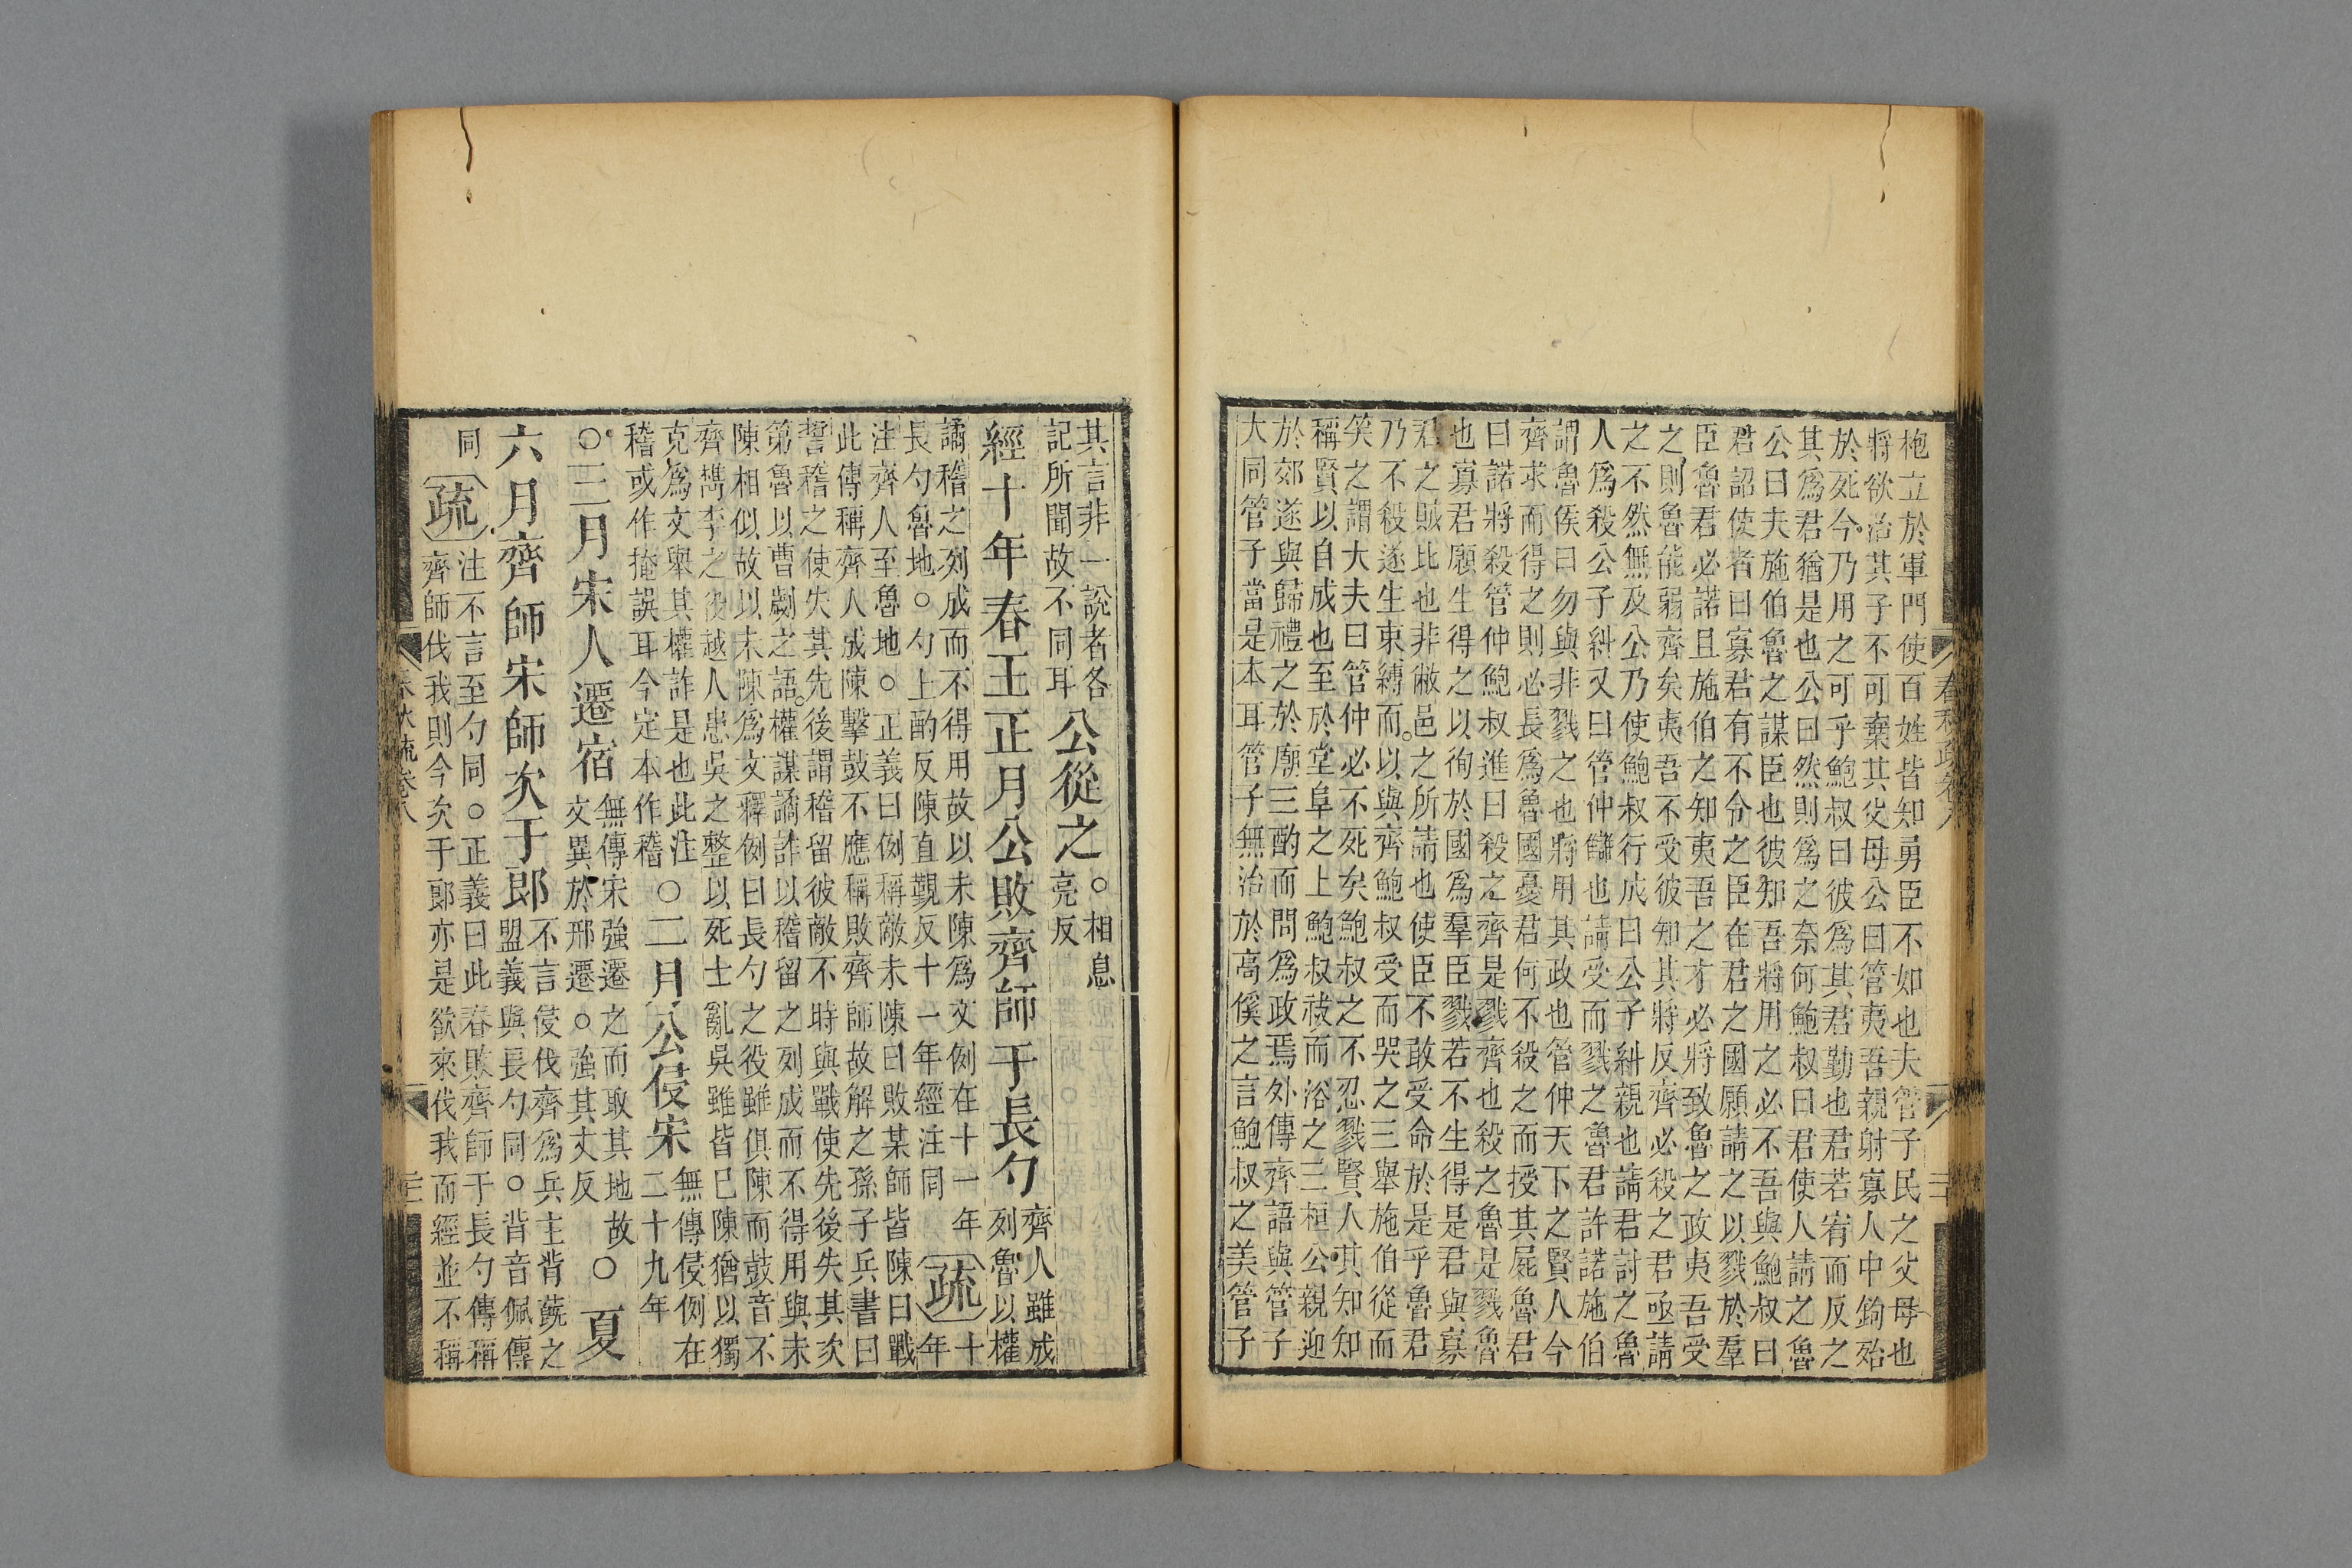 枹立於軍門使百姓皆知勇臣不如也夫管子民之父母也
將欲治其子不可棄其父母公曰管夷吾親射寡人中鉤殆
於死今乃用之可乎鮑叔曰彼爲其君勤也君若宥而反之
其爲君猶是也公曰然則爲之奈何鮑叔曰君使人請之魯
公曰夫施伯魯之謀臣也彼知吾將用之必不吾與鮑叔曰
君詔使者曰寡君有不令之臣在君之國願請之以戮於羣
臣魯君必諾且施伯之知夷吾之才必將致魯之政夷吾受
之則魯能弱齊矣夷吾不受彼知其將反齊必殺之君亟請
之不然無及公乃使鮑叔行成曰公子糾親也請君討之魯
人爲殺公子糾又曰管仲讎也請受而戮之魯君許諾施伯
謂魯侯曰勿與非戮之也將用其政也管仲天下之賢人今
齊求而得之則必長爲魯國憂君何不殺之而授其屍魯君
曰諾將殺管仲鮑叔進曰殺之齊是戮齊也殺之魯是戮魯
也寡君願生得之以徇於國爲羣臣戮若不生得是君與寡
君之賊比也非敝邑之所請也使臣不敢受命於是乎魯君
乃不殺遂生束縛而以與齊鮑叔受而哭之三舉施伯從而
笑之謂大夫曰管仲必不死矣鮑叔之不忍戮賢人其知知
稱賢以自成也至於堂阜之上鮑叔祓而浴之三桓公親迎
於郊遂與歸禮之於廟三酌而問爲政焉外傳齊語與管子
大同管子當是本耳管子無治於高傒之言鮑叔之美管子
其言非一說者各
記所聞故不同耳
公從之
○相息
亮反
經十年春王正月公敗齊師于長勺
齊人雖成
列魯以權
譎稽之列成而不得用故以未陳爲文例在十一年
長勺魯地○勺上酌反陳直覲反十一年經注同
疏
十
年
注齊人至魯地○正義曰例稱敵未陳曰敗某師皆陳曰戰
此傳稱齊人成陳擊鼓不應稱敗齊師故解之孫子兵書曰
誓稽之使失其先後謂稽留彼敵不時與戰使先後失其次
第魯以曹劌之語權謀譎詐以稽留之列成而不得用與未
陳相似故以未陳爲文釋例曰長勺之役雖俱陳而鼓音不
齊檇李之役越人患吳之整以死士亂吳雖皆已陳猶以獨
克爲文舉其權詐是也此注
稽或作掩誤耳今定本作稽
○二月公侵宋
無傳侵例在
二十九年
○三月宋人遷宿
無傳宋強遷之而取其地故
文異於邢遷○強其丈反
○夏
六月齊師宋師次于郎
不言侵伐齊爲兵主背蔇之
盟義與長勺同○背音佩傳
同
疏
注不言至勺同○正義曰此春敗齊師于長勺傳稱
齊師伐我則今次于郎亦是欲來伐我而經並不稱
春秋疏卷八